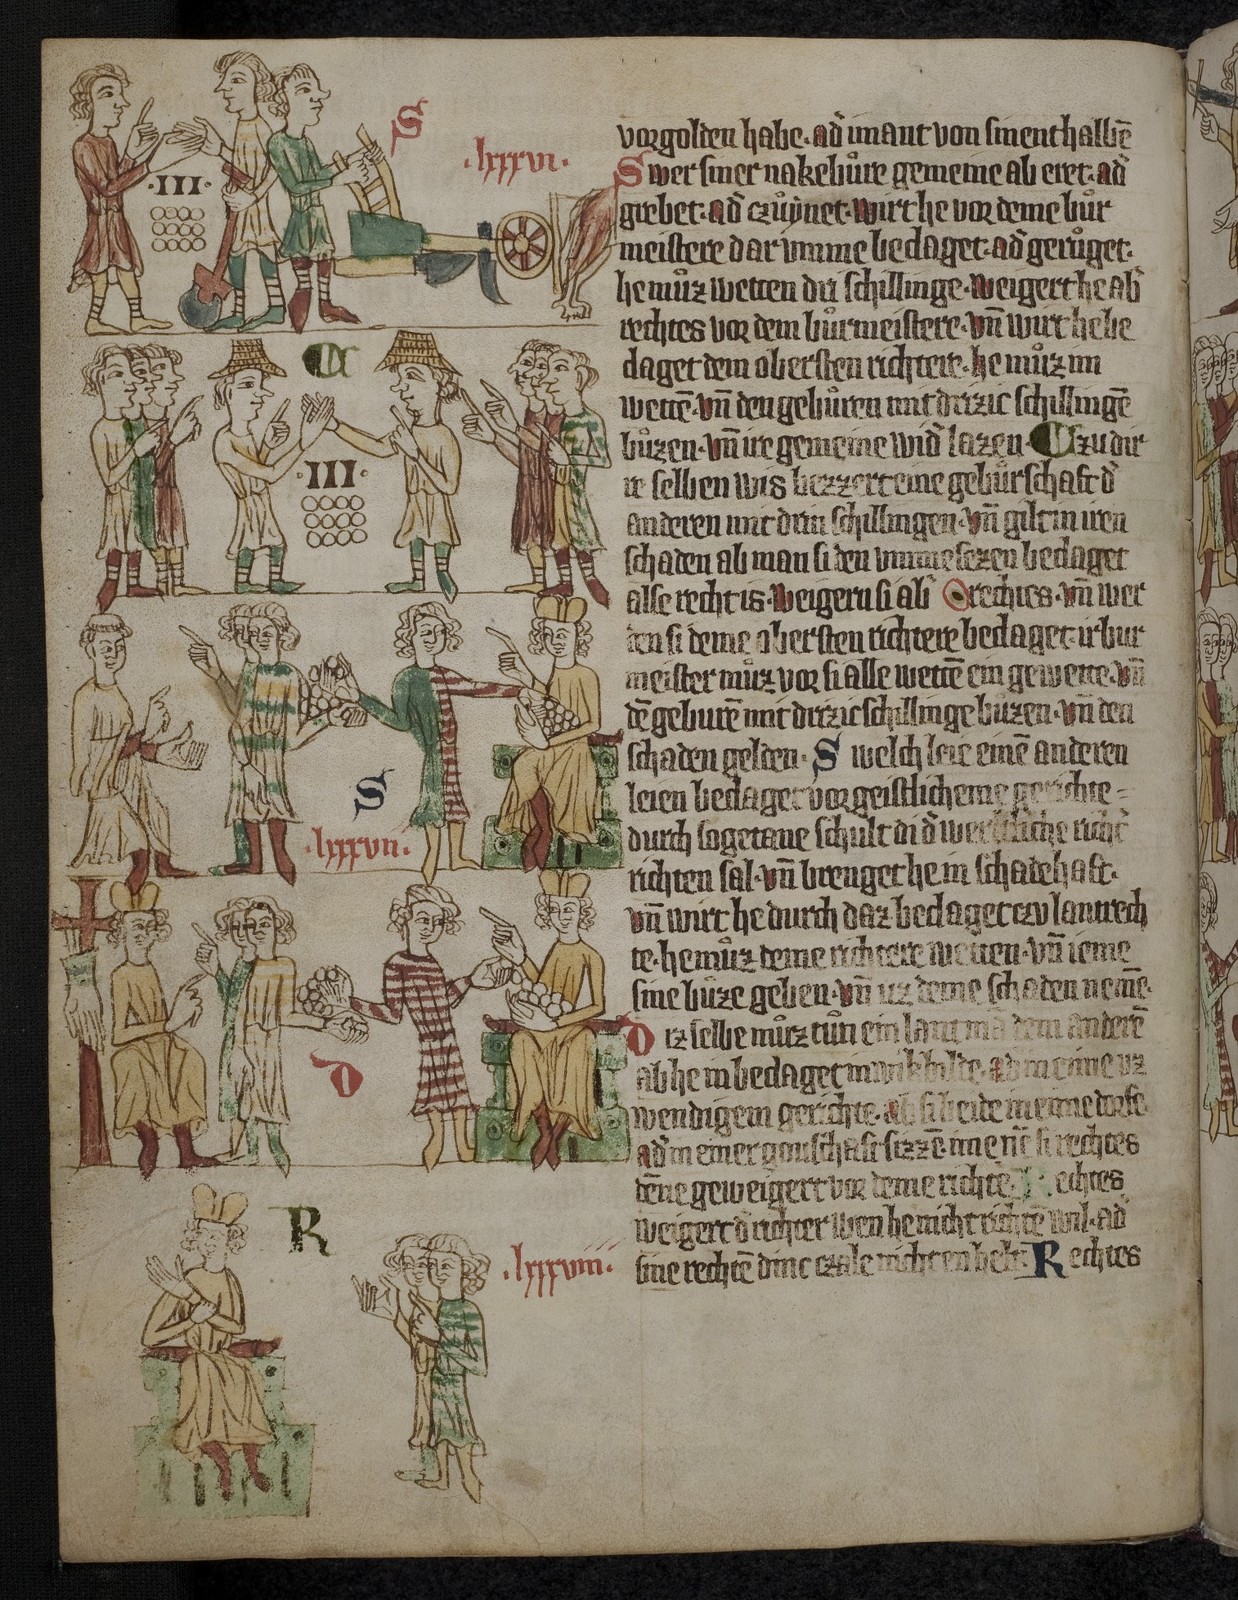 S
·lxxxvi·
·III·
C
·III·
S
·lxxxvii·
D
R
·lxxxviii·
vorgolden habe· ad̄ imant von sinenthalbē
Swer siner nakebůre gemeine ab eret· ad̄
grebet· ad̄ czůẏnet· wirt he vor deme bůr
meistere dar vmme bedaget· ad̄ gerůget·
he můz wetten dri schillinge· Weigert he ab̄
rechtes vor dem bůrmeistere· vn̄ wirt he be
daget dem obersten richtere· he můz im
wettē· vn̄ den gebůren mit drizic schillingē
bůzen· vn̄ ire gemeine wid̄ lazen· Czu dir
re selben wis bezzert eine gebůrschaft d̄
anderen mit drin schillingen· vn̄ gilt in iren
schaden ab man si den vmmesezen bedaget
alse recht is· Weigern si ab̄ rechtes· vn̄ wer
den si deme obersten richtere bedaget· ir bur
meister můz vor si alle wettē ein gewette· vn̄
dē geburē mit drizic schillinge bůzen· vn̄ den
schaden gelden· Swelch leie einē anderen
leien bedaget vor geistlicheme gerichte
durch sogetane schult di d̄ werltliche richt̄
richten sal· vn̄ brenget he in schadehaft·
vn̄ wirt he durch daz bedaget czv lantrech
te· he můz deme richtere wetten· vn̄ ieme
sine bůze geben· vn̄ uz deme schaden nemē·
Diz selbe můz tůn ein lant mā dem anderē
ab he in bedaget in wikbilde· ad̄ in eime vz
wendigem gerichte· ab si beide in eime dorfe
ad̄ in einer gouschaft sizzē· ime nē si rechtes
dēne geweigert vor deme richte· Rechtes
weigert d̄ richter wen he nicht richtē wil· ad̄
sine rechtē dinc czale nicht en helt· Rechtes